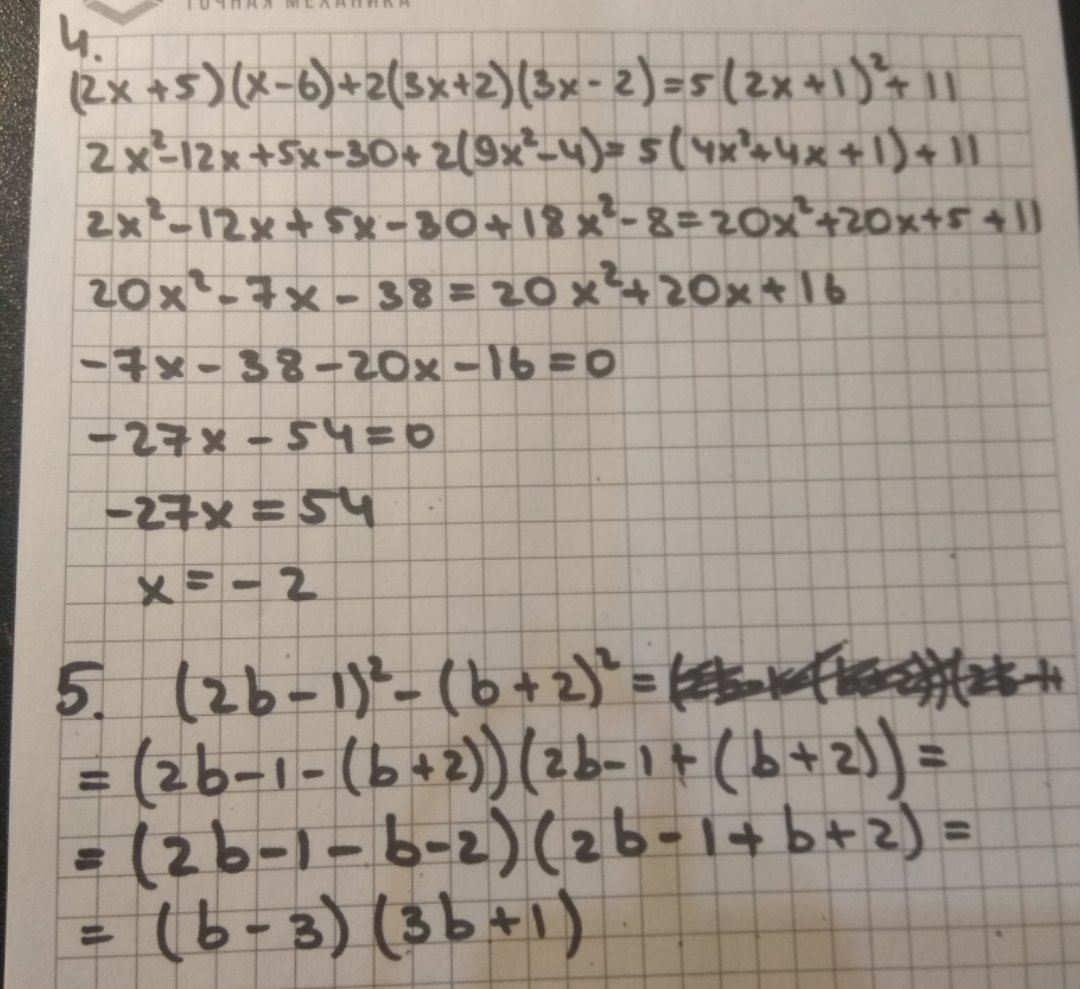 ТОЧНАЯ МЕХАНИКА
4.
(2x+5)(x-6)+2(3x+2)(3x-2)=5(2x+1)²+11
2x²-12x+5x-30+2(9x²-4)=5(4x²+4x+1)+11
2x²-12x+5x-30+18x²-8=20x²+20x+5+11
20x²-7x-38=20x²+20x+16
-7x-38-20x-16=0
-27x-54=0
-27x=54
x=-2
5. (2b-1)²-(b+2)²=
=(2b-1-(b+2))(2b-1+(b+2))=
=(2b-1-b-2)(2b-1+b+2)=
=(b-3)(3b+1)